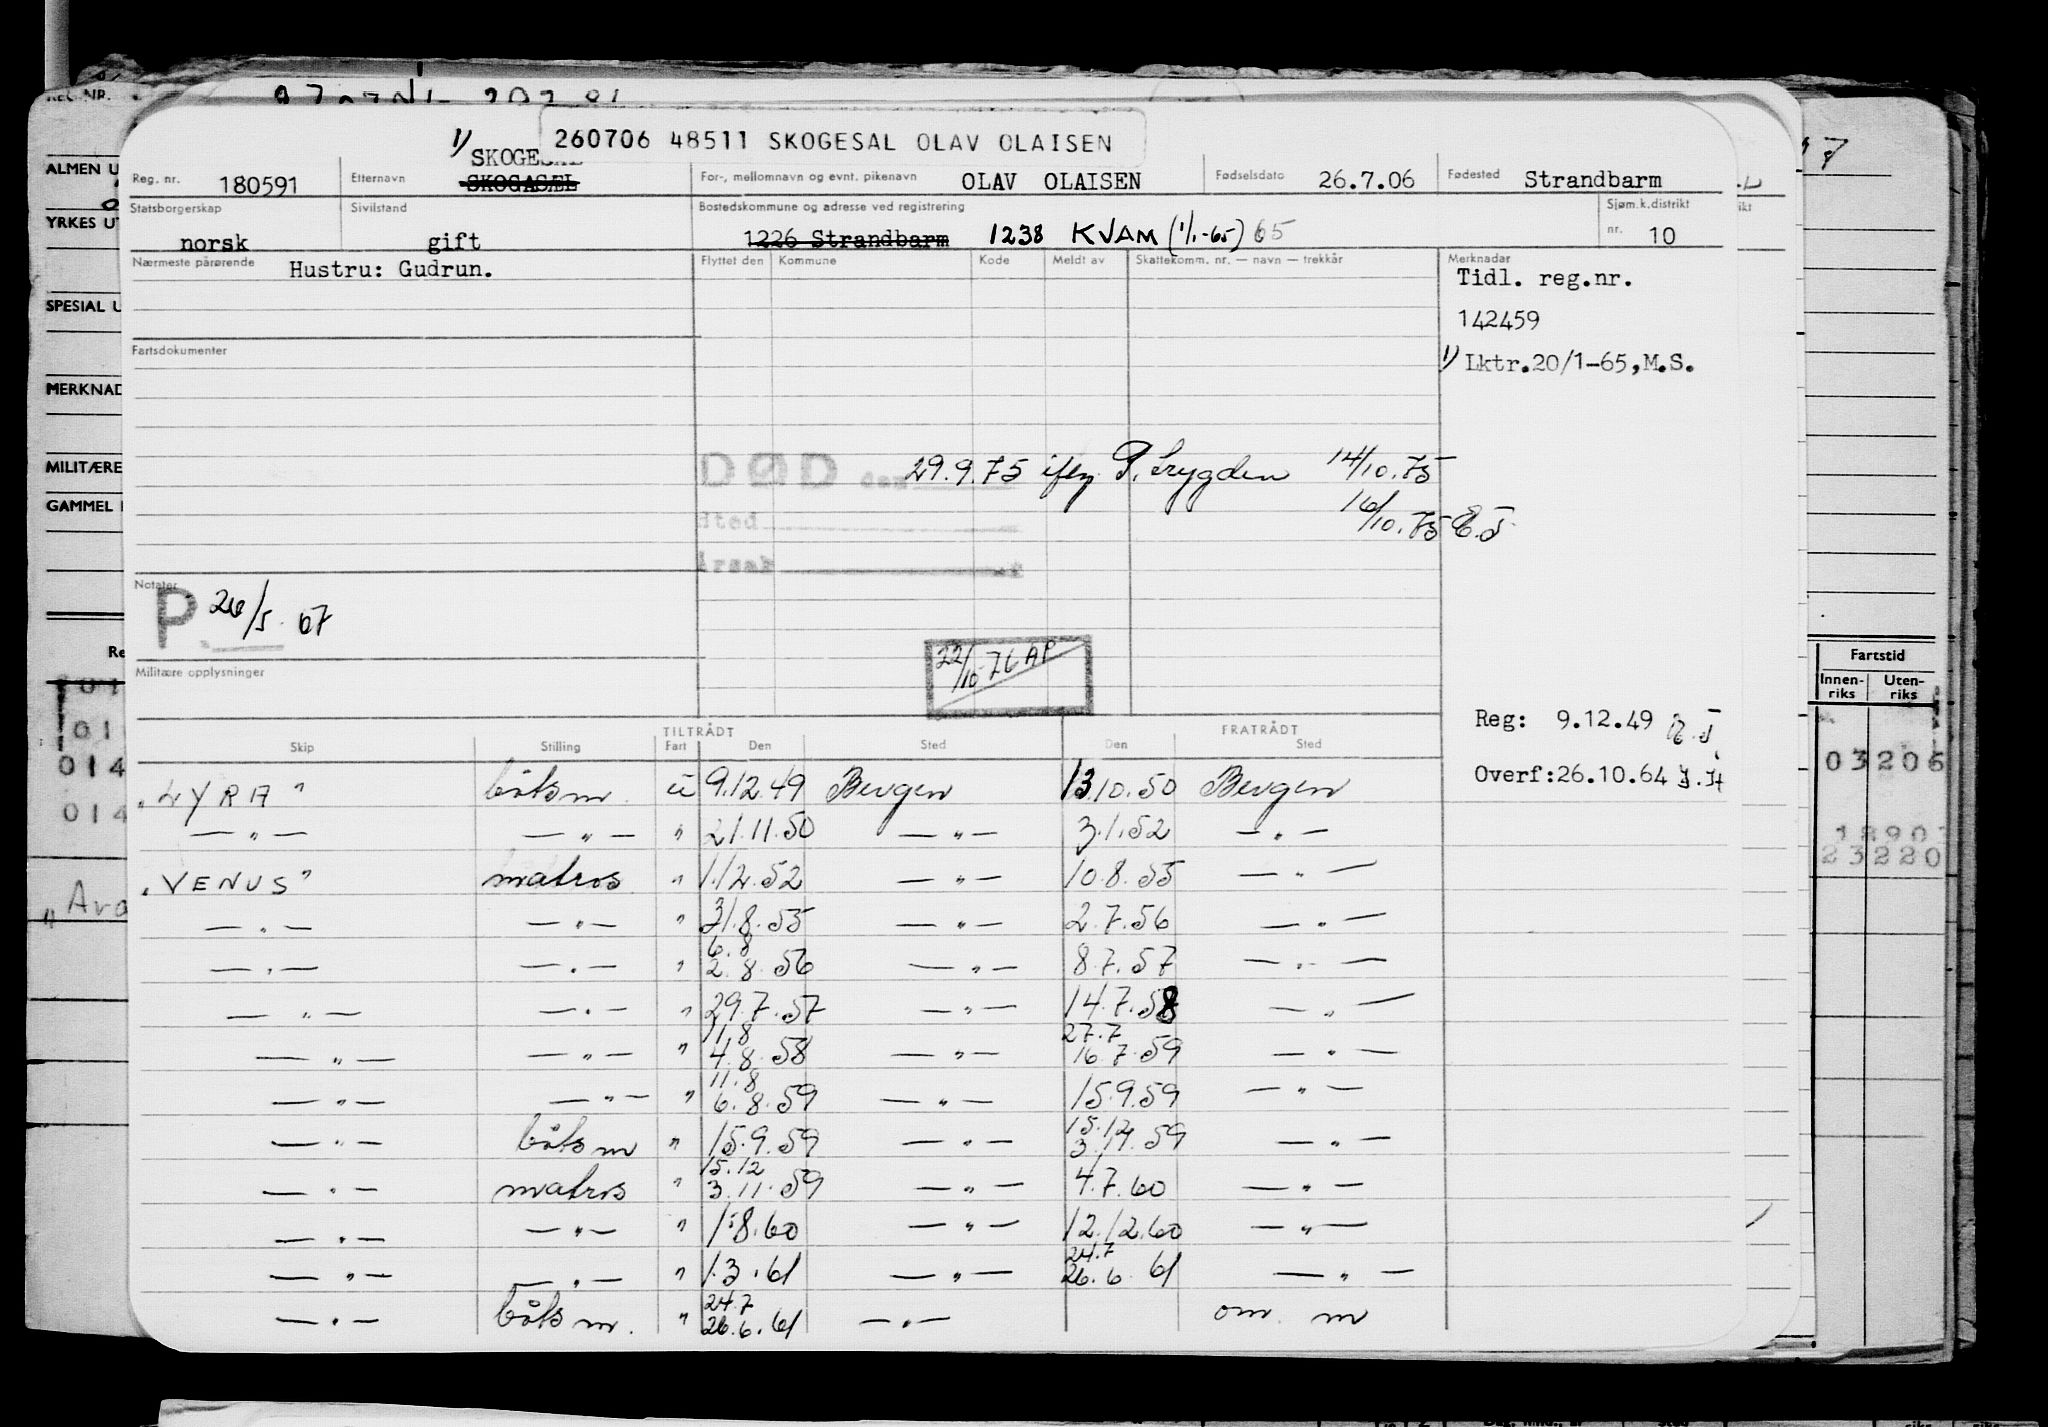 260706 48511 SKOGESAL OLAV OLAISEN
1) SKOGESAL
Reg. nr. 180591 Etternavn SKOGASÆL For-, mellomnavn og evnt. pikenavn OLAV OLAISEN Fødselsdato 26.7.06 Fødested Strandbarm
Statsborgerskap norsk Sivilstand gift Bostedskommune og adresse ved registrering 1226 Strandbarm 1238 KVAM (1/1-65) 65 Sjøm.k.distrikt nr. 10
Nærmeste pårørende Hustru: Gudrun. Flyttet den Kommune Kode Meldt av Skattekomm. nr. — navn — trekkår Merknader
Tidl. reg.nr.
142459
Fartsdokumenter 1) Lktr.20/1-65,M.S.
DØD den 29.9.75 iflg. P. Trygden 14/10.75
Sted 16/10.75 E.J
Årsak
Notater
P 26/5.67
22/10-76 AP
Militære opplysninger
Reg: 9.12.49
Overf:26.10.64
TILTRÅDT FRATRÅDT
Skip Stilling Fart Den Sted Den Sted
"LYRA" båtsm. u 9.12.49 Bergen 13.10.50 Bergen
—"— —"— " 21.11.50 —"— 3.1.52 —"—
"VENUS" matros " 1.12.52 —"— 10.8.55 —"—
—"— —"— " 31.8.55 —"— 2.7.56 —"—
6.8
—"— —"— " 2.8.56 —"— 8.7.57 —"—
—"— —"— " 29.7.57 —"— 14.7.58 —"—
11.8 27.7
—"— —"— " 4.8.58 —"— 16.7.59 —"—
11.8
—"— —"— " 6.8.59 —"— 15.9.59 —"—
15.12
—"— båtsm " 15.9.59 —"— 3.11.59 —"—
15.12
—"— matros " 3.11.59 —"— 4.7.60 —"—
—"— —"— " 1.8.60 —"— 12.12.60 —"—
24.7
—"— —"— " 1.3.61 —"— 26.6.61 —"—
24.7
—"— båtsm. " 26.6.61 —"— om. m
ALMEN U
YRKES UT
SPESIAL U
MERKNAD
MILITÆRE
GAMMEL
014
014
"Ava
Fartstid
Innen-riks Uten-riks
03206
18903
23220